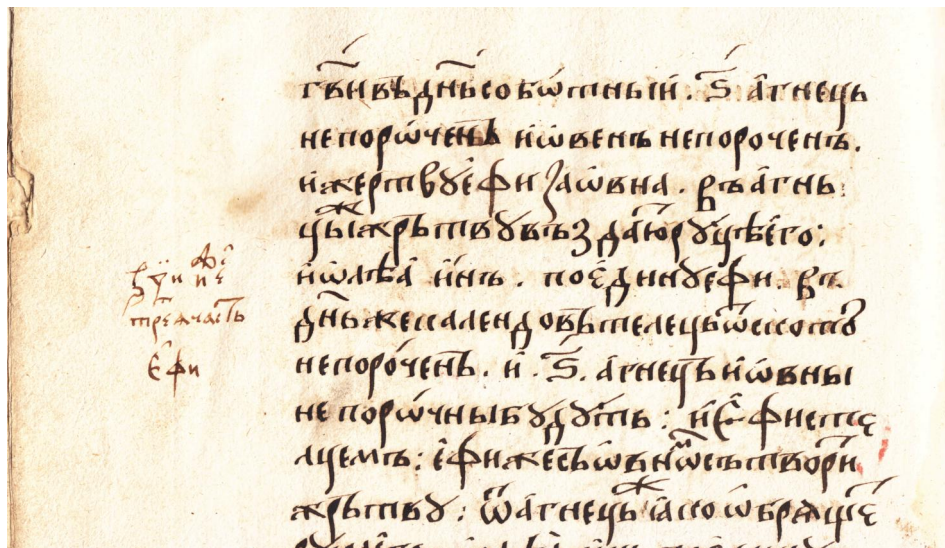 гвⷭ҇и въ дн҃ь собѡтныи҆. ѕ҃. а҆гнець
непоро́ченъ и҆ ѡвенъ непороченъ.
и҆ жертвꙋ е҆фи за ѡ҆вна. въ а҆гнь
цы жрътвꙋ въз даⷩ҇ю рꙋцѣ е҆го:
и҆ ѡлѣа и҆нъ. по є҆динꙋ ефи. въ
дн҃ь же календовъ телець ѿ скотъ
непоро́ченъ. и҆. ѕ҃. агнець и҆ ѡвны
непорѡ́чны бꙋдꙋть: и҆ е҆фи с те
лцемъ: е҆фи же съ ѡвномъ сътвори
жрътвꙋ: ѿ а҆гнець ꙗ҆ко ѡ҆брящеⷮ
третꙗ часть
е҆фи